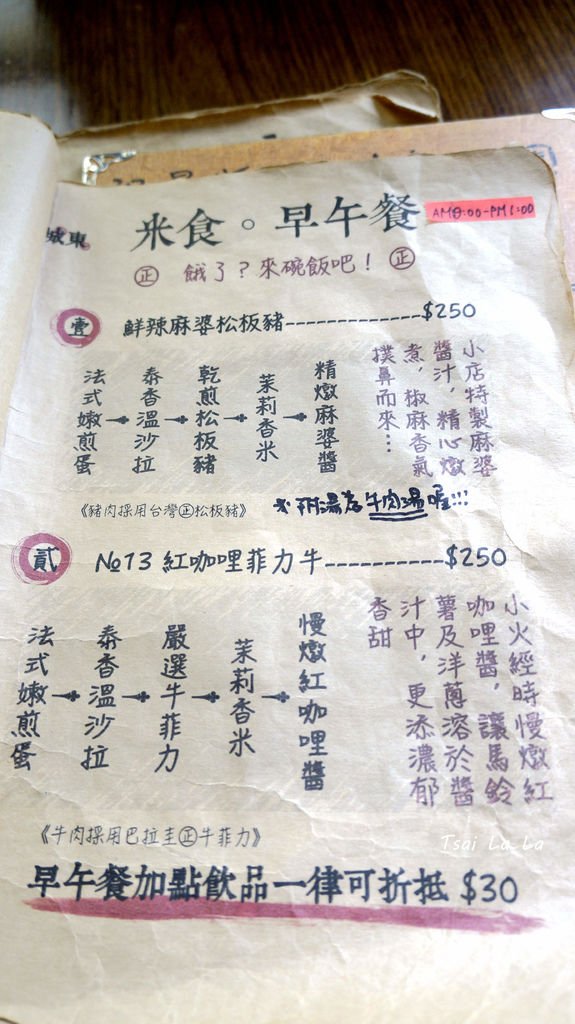 城東
米食。早午餐
AM9:00-PM1:00
㊣ 餓了?來碗飯吧! ㊣
壹 鮮辣麻婆松板豬-------------$250
法式嫩煎蛋
泰香溫沙拉
乾煎松板豬
茉莉香米
精燉麻婆醬
小店特製麻婆
醬汁,精心燉
煮,椒麻香氣
撲鼻而來…
《豬肉採用台灣㊣松板豬》
附湯為牛肉湯喔!!!
貳 №13 紅咖哩菲力牛-----------$250
法式嫩煎蛋
泰香溫沙拉
嚴選牛菲力
茉莉香米
慢燉紅咖哩醬
小火經時慢燉紅
咖哩醬,讓馬鈴
薯及洋蔥溶於醬
汁中,更添濃郁
香甜
《牛肉採用巴拉圭㊣牛菲力》
Tsai La La
早午餐加點飲品一律可折抵 $30